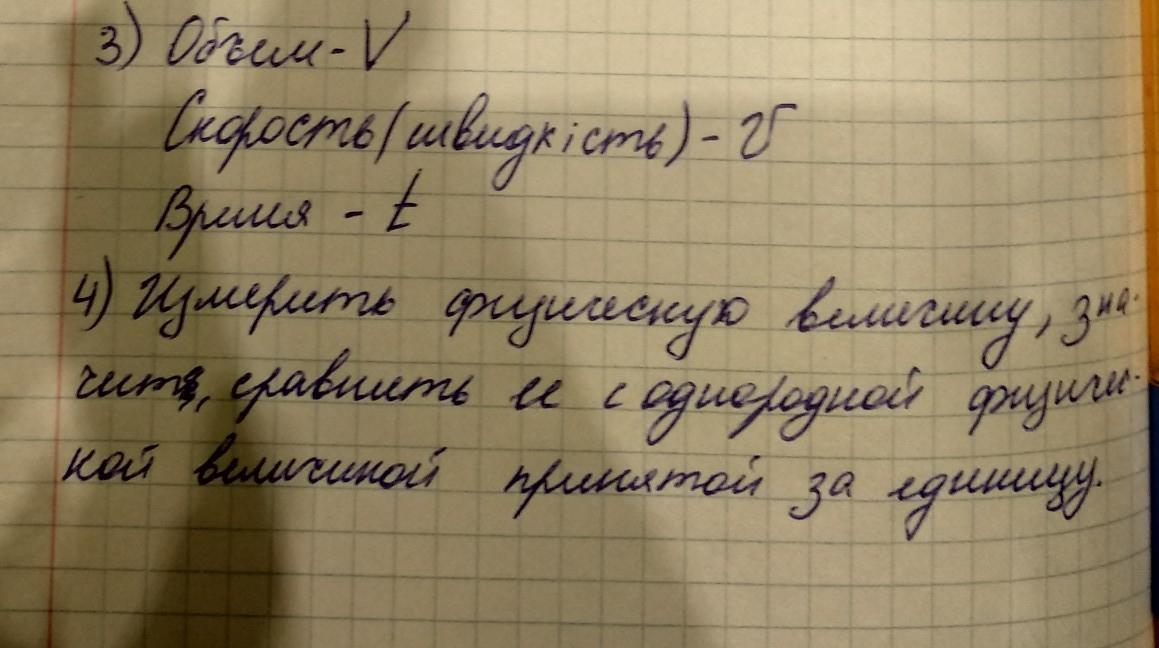 3) Объем - V
Скорость (швидкість) - v
Время - t
4) Измерить физическую величину, зна-
чить, сравнить ее с однородной физичес-
кой величиной принятой за единицу.